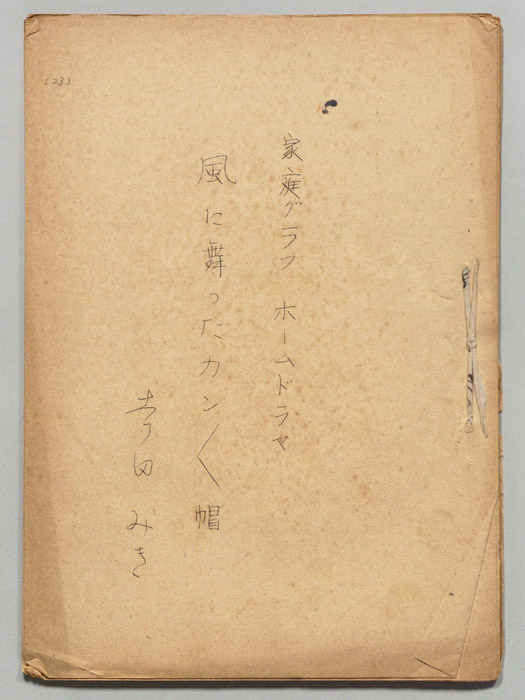 (23)
家庭グラフ ホームドラマ
風に舞ったカン〱帽
みき